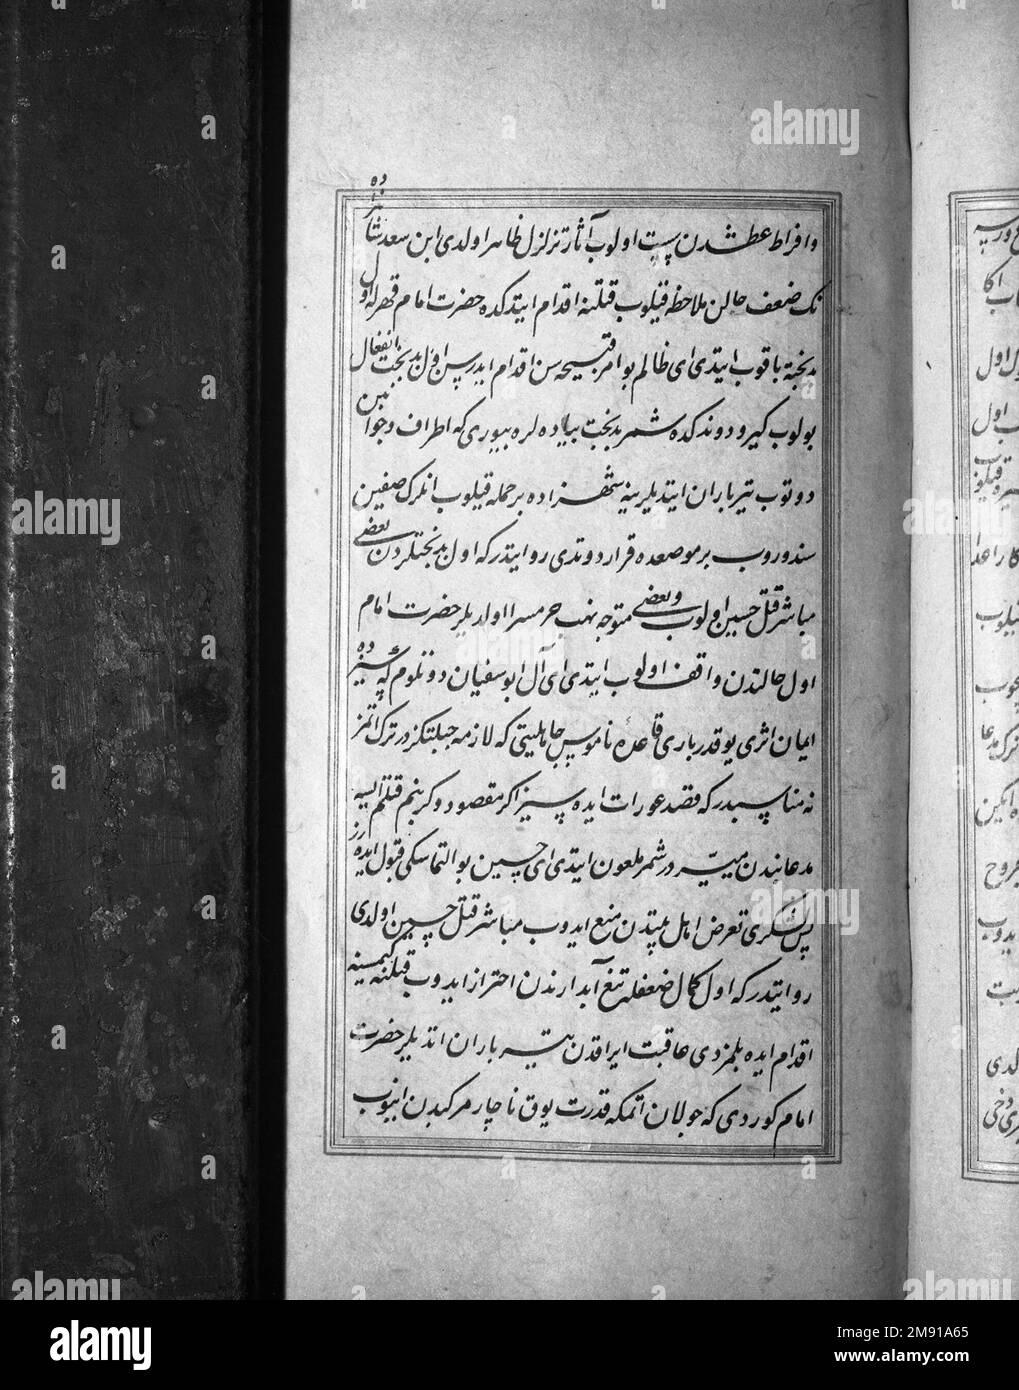 و افراط عطشدن پست اولوب آثار تزلزل ظاهر اولدی ابن سعد شاهزاده
نک ضعف حالن ملاحظه قیلوب قتلنه اقدام ایتدکده حضرت امام قهرله اول
بدبخته باقوب ایتدی ای ظالم بو امر قبیحه سن اقدام ایدرسن اول بدبخت انفعال
بولوب کیرو دوندکده شمر بدبخت پیاده لره بیوردی که اطراف و جوانبین
دوتوب تیرباران ایتدیلر ینه شهزاده بر حمله قیلوب انلرک صفین
سندوروب بر موضعده قرار دوتدی روایتدر که اول بدبختلردن بعضی
مباشر قتل حسین اولوب و بعضی متوجه نهب حرمسرا اولدیلر حضرت امام
اول حالندن واقف اولوب ایتدی ای آل ابو سفیان دوتلوم که سیزده
ایمان اثری یوقدر باری قاعدهٔ ناموس جاهلیتی که لازمه جبلتکزدر ترک اتمز
نه مناسبدر که قصد عورات ایده سیز اکر مقصودوکز بنم قتلم ایسه
مدعانیدن میسّردر شمر ملعون ایتدی ای حسین بو التماسکی قبول ایده رز
پس لشکری تعرض اهل بیتدن منع ایدوب مباشر قتل حسین اولدی
روایتدر که اول کمال ضعفله تیغ آبدارندن احتراز ایدوب قتلنه کیمسنه
اقدام ایده بلمزدی عاقبت ایراقدن تیرباران اتدیلر حضرت
امام کوردی که جولان اتمکه قدرت یوق ناچار مرکبدن اینوب
alamy
alamy
Image ID: 2M91A65
www.alamy.com